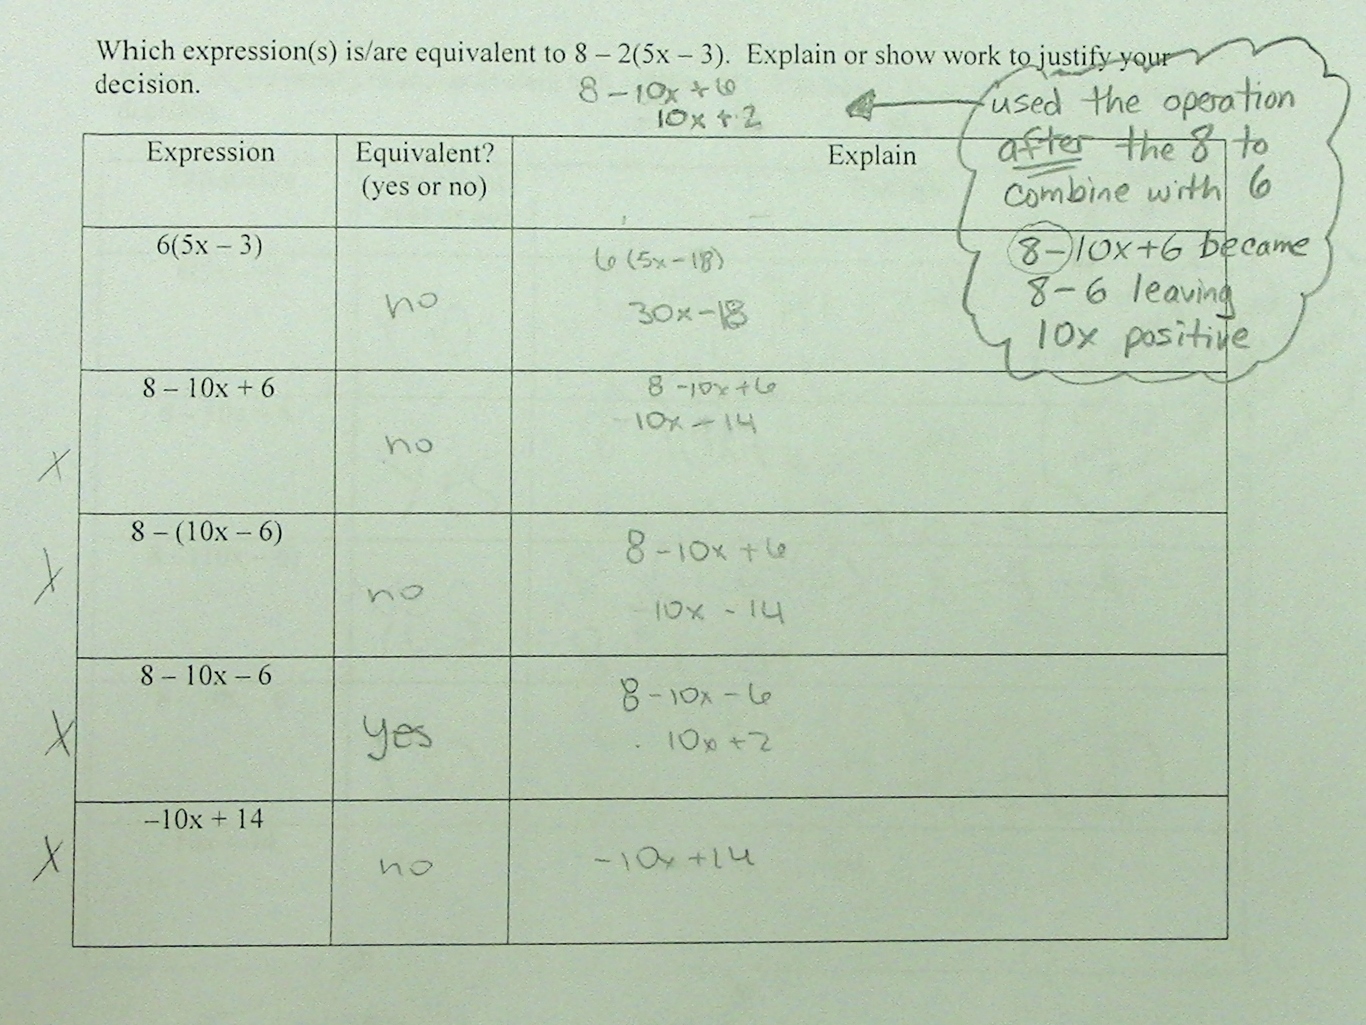 Which expression(s) is/are equivalent to 8 – 2(5x – 3). Explain or show work to justify your
decision.
8 - 10x + 6
10x + 2
used the operation
after the 8 to
combine with 6
8-10x+6 became
8-6 leaving
10x positive
Expression
Equivalent?
(yes or no)
Explain
6(5x – 3)
no
6(5x-18)
30x-18
8 – 10x + 6
no
8-10x+6
10x-14
X
8 – (10x – 6)
no
8-10x+6
10x-14
X
8 – 10x – 6
yes
8-10x-6
10x+2
X
–10x + 14
no
-10x+14
X